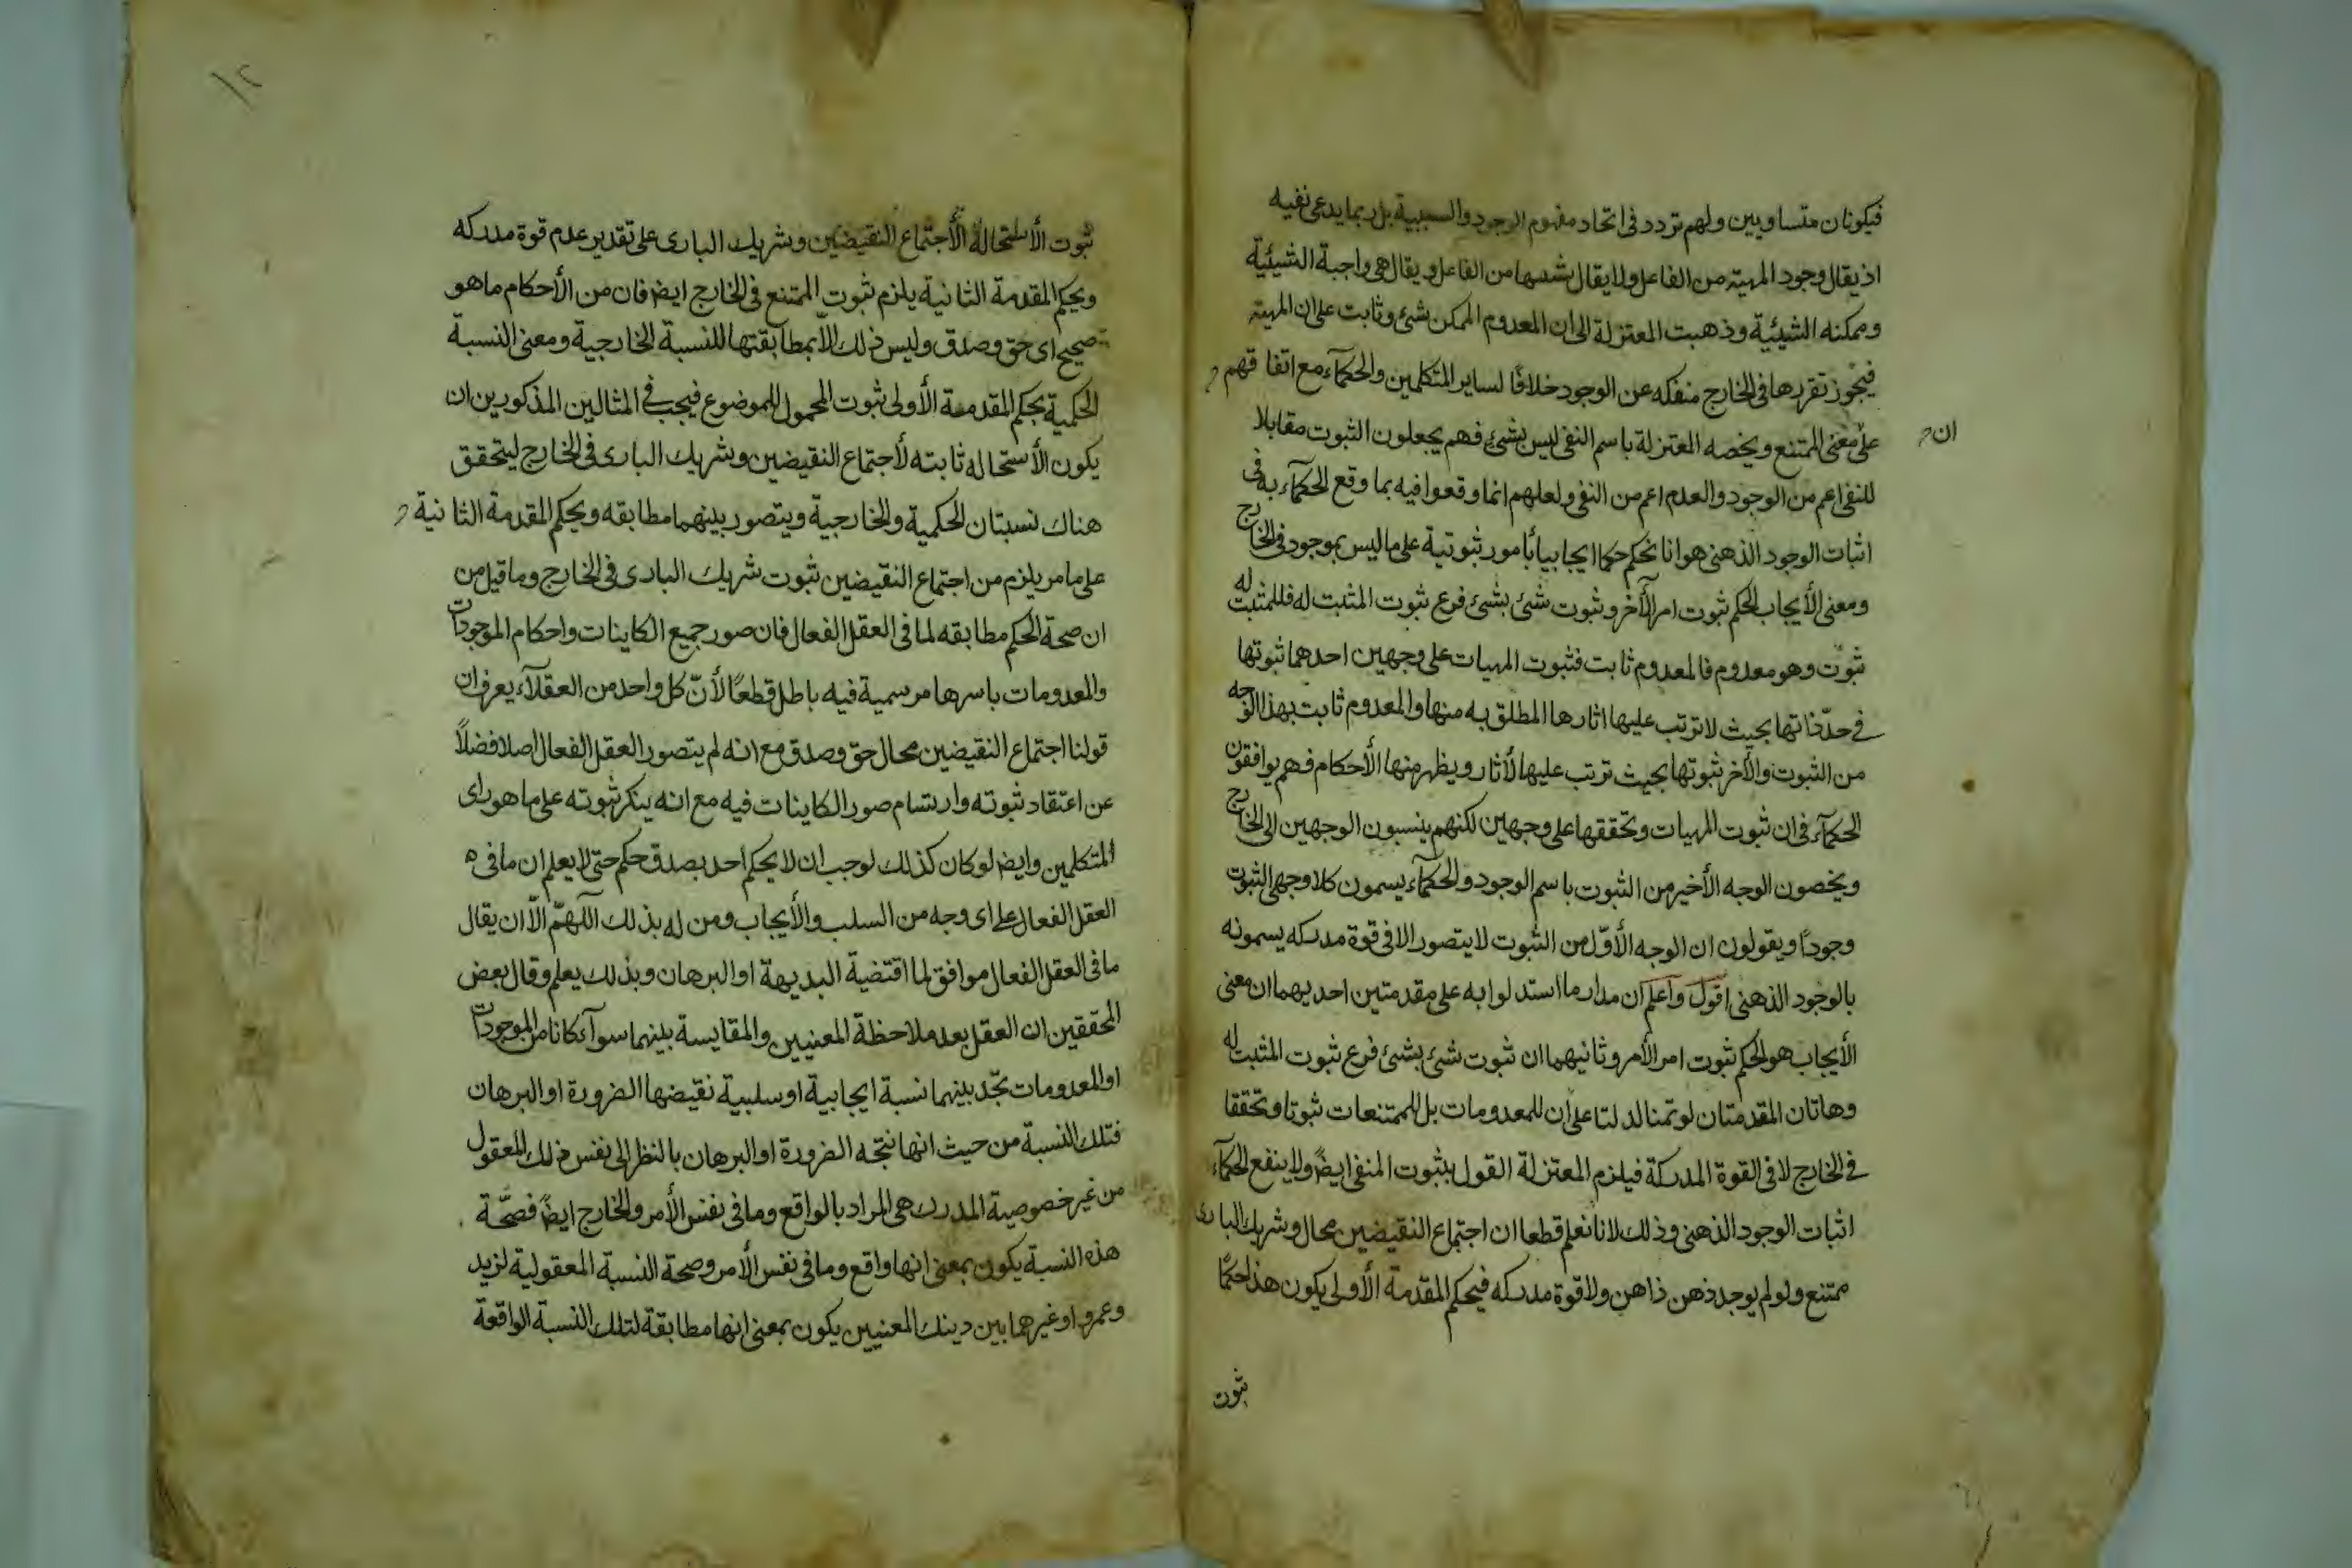 فيكونان متساويين ولهم تردد فى اتحاد مفهوم الوجود والسببية بل ربما يدعى نفيه
اذ يقال وجود المهية من الفاعل ولا يقال شيئيتها من الفاعل ويقال هى واجبة الشيئية
وممكنه الشيئية وذهبت المعتزلة الى ان المعدوم الممكن شئ وثابت على ان المهية
فيجوز تقررها فى الخارج منفكه عن الوجود خلافًا لساير المتكلمين والحكمآء مع اتفاقهم
ان
على معنى الممتنع ويخصه المعتزلة باسم النفى ليس بشئ فهم يجعلون الثبوت مقابلا
للنفى اعم من الوجود والعدم اعم من النفى ولعلهم انما وقعوا فيه بما وقع الحكمآء به فى
اثبات الوجود الذهنى هو انا نحكم حكما ايجابيا بأمور ثبوتية على ما ليس بموجود فى الخارج
ومعنى الأيجاب الحكم ثبوت امر لآخر وثبوت شئ بشئ فرع ثبوت المثبت له فللمثبت له
ثبوت وهو معدوم فالمعدوم ثابت فثبوت المهيات على وجهين احدهما ثبوتها
فى حدّ ذاتها بحيث لا ترتب عليها اثارها المطلق به منها والمعدوم ثابت بهذا الوجه
من الثبوت والأخر ثبوتها بحيث ترتب عليها الأثار ويظهر منها الأحكام فهم يوافقون
الحكمآء فى ان ثبوت المهيات وتحققها على وجهين لكنهم ينسبون الوجهين الى الخارج
ويخصون الوجه الأخير من الثبوت باسم الوجود والحكمآء يسمون كلا وجهى الثبوت
وجودًا ويقولون ان الوجه الأوّل من الثبوت لا يتصور الا فى قوة مدركه يسمونه
بالوجود الذهنى اقول واعلم ان مدار ما استدلوا به على مقدمتين احديهما ان معنى
الأيجاب هو الحكم ثبوت امر لأمر وثانيهما ان ثبوت شئ بشئ فرع ثبوت المثبت له
وهاتان المقدمتان لو تمتا لدلتا على ان للمعدومات بل للممتنعات ثبوتا وتحققا
فى الخارج لا فى القوة المدركة فيلزم المعتزلة القول بثبوت المنفى ايضً ولا ينفع الحكمآء
اثبات الوجود الذهنى وذلك لانا نعلم قطعا ان اجتماع النقيضين محال وشريك البارى
ممتنع ولو لم يوجد ذهن ذاهن ولا قوة مدركه فيحكم المقدمة الأولى يكون هذا حكمًا
ثبوت
ثبوت الأستحالة لأجتماع النقيضين وشريك البارى على تقدير عدم قوة مدركه
ويحكم المقدمة الثانية يلزم ثبوت الممتنع فى الخارج ايضا فان من الأحكام ما هو
صحيح اى حق وصدق وليس ذلك الّا بمطابقتها للنسبة الخارجية ومعنى النسبة
الحكمية بحكم المقدمة الأولى ثبوت المحمول للموضوع فيجب فى المثالين المذكورين ان
يكون الأستحاله ثابته لأجتماع النقيضين وشريك البارى فى الخارج ليتحقق
هناك نسبتان الحكمية والخارجية ويتصور بينهما مطابقه وبحكم المقدمة الثانية
على ما مر يلزم من اجتماع النقيضين ثبوت شريك البارى فى الخارج وما قيل من
ان صحة الحكم مطابقه لما فى العقل الفعال فان صور جميع الكاينات واحكام الموجودات
والمعدومات باسرها مرسمية فيه باطل قطعًا لأنّ كل واحد من العقلآء يعرف ان
قولنا اجتماع النقيضين محال حق وصدق مع انه لم يتصور العقل الفعال اصلا فضلاً
عن اعتقاد ثبوته وارتسام صور الكاينات فيه مع انه ينكر ثبوته على ما هو راى
المتكلمين وايضا لو كان كذلك لوجب ان لا يحكم احد بصدق حكم حتى لا يعلم ان ما فى
العقل الفعال على اى وجه من السلب والأيجاب ومن له بذلك اللهمّ الّا ان يقال
ما فى العقل الفعال موافق لما اقتضية البديهة او البرهان وبذلك يعلم وقال بعض
المحققين ان العقل بعد ملاحظة المعنيين والمقايسة بينهما سوآء كانا من الموجودات
او المعدومات تجد بينهما نسبة ايجابية او سلبية نقيضها الضرورة او البرهان
فتلك النسبة من حيث انها نتجه الضرورة او البرهان بالنظر الى نفس ذلك المعقول
من غير خصوصية المدرك هى المراد بالواقع وما فى نفس الأمر والخارج ايضً فصحّة
هذه النسبة يكون بمعنى انها واقع وما فى نفس الأمر وصحة النسبة المعقولية لزيد
وعمرو او غيرهما بين دينك المعنيين يكون بمعنى انها مطابقة لتلك النسبة الواقعة